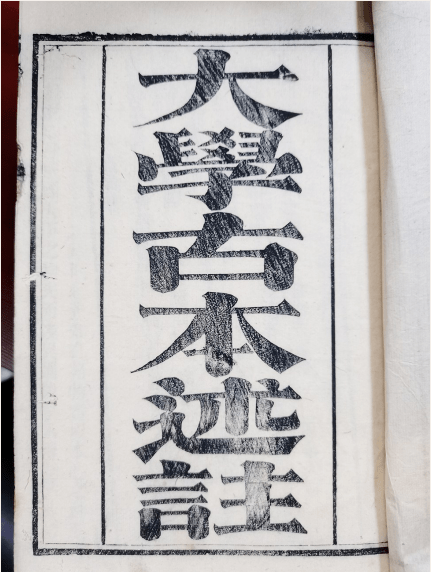 大學古本述註